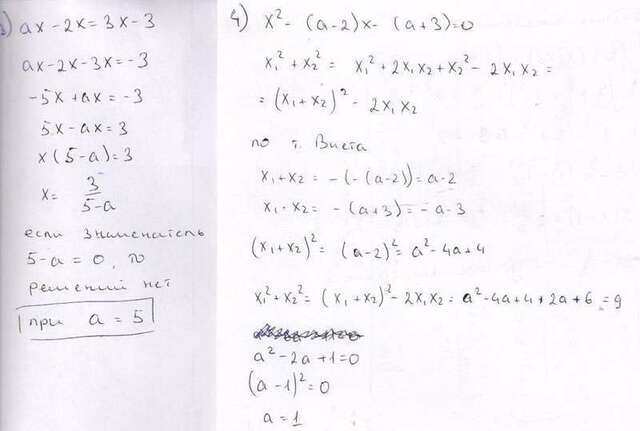 3) ax-2x=3x-3
ax-2x-3x=-3
-5x+ax=-3
5x-ax=3
x(5-a)=3
x= 3/(5-a)
если знаменатель
5-a=0, то
решений нет
при a=5
4) x²-(a-2)x-(a+3)=0
x₁²+x₂²= x₁²+2x₁x₂+x₂²-2x₁x₂=
=(x₁+x₂)²-2x₁x₂
по т. Виета
x₁+x₂=-(-(a-2))=a-2
x₁·x₂=-(a+3)=-a-3
(x₁+x₂)²=(a-2)²=a²-4a+4
x₁²+x₂²=(x₁+x₂)²-2x₁x₂=a²-4a+4+2a+6=9
a²-2a+1=0
(a-1)²=0
a=1